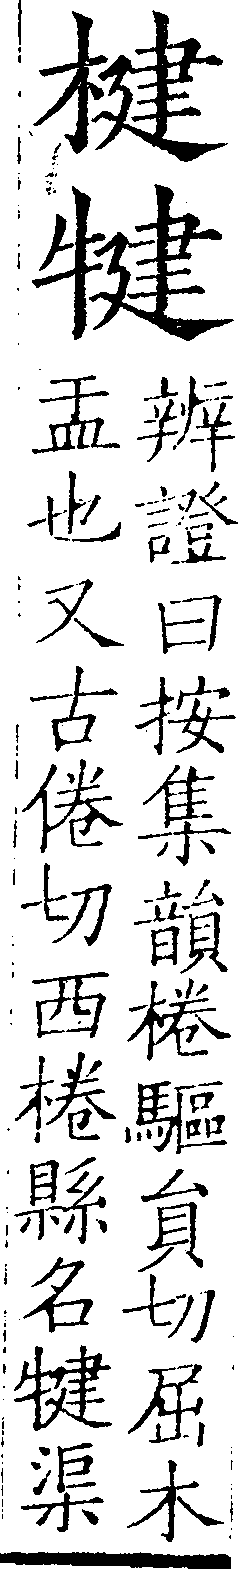 楗犍
辨證曰按集韻棬驅貟切屈木
盂也又古倦切西棬縣名犍渠